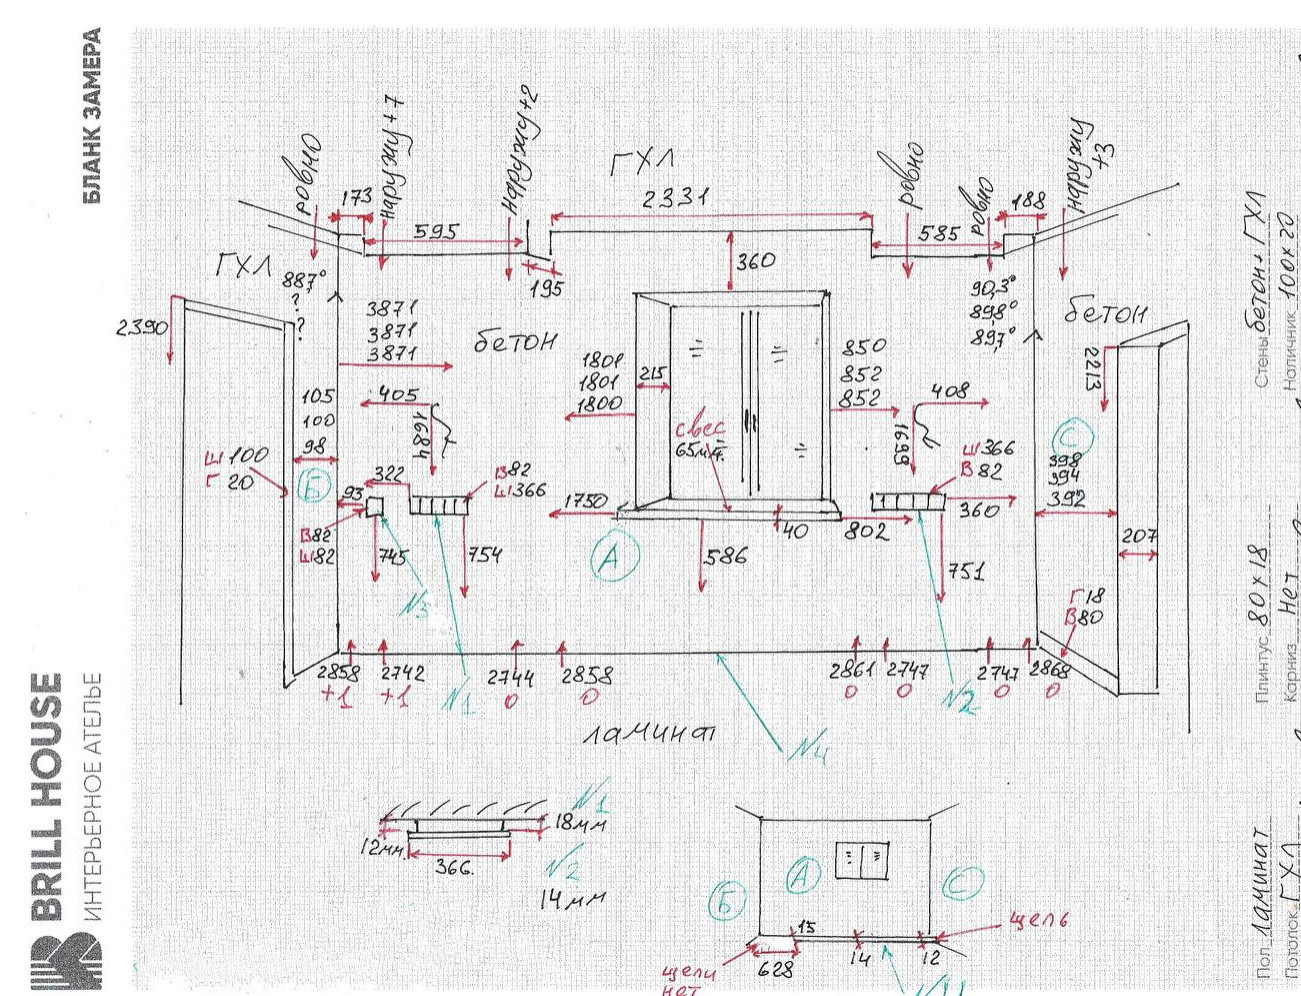 БЛАНК ЗАМЕРА
BRILL HOUSE
ИНТЕРЬЕРНОЕ АТЕЛЬЕ
ровно
наружу+7
наружу+2
ГХЛ
ровно
ровно
наружу
+3
173
595
195
2331
585
188
360
ГХЛ
887°
?
?
2390
3871
3871
3871
бетон
90,3°
89,8°
89,7°
бетон
2213
1801
1801
1800
215
850
852
852
105
100
98
405
1684
408
1699
свес
65мм
С
Ш100
Г 20
Б
322
93
В82
Ш366
Ш366
В82
398
394
392
1750
40
802
360
207
В82
Ш82
745
754
А
586
751
N3
Г18
В80
2858
+1
2742
+1
N1
2744
0
2858
0
2861
0
2747
0
N2
2747
0
2868
0
ламинат
N4
N1
18мм
12мм.
366.
N2
14мм
А
Б
С
15
щель
628
14
12
щели
нет
Стены бетон+ГХЛ
Наличник 100х20
Плинтус 80х18
Карниз Нет
Пол ламинат
Потолок ГХЛ